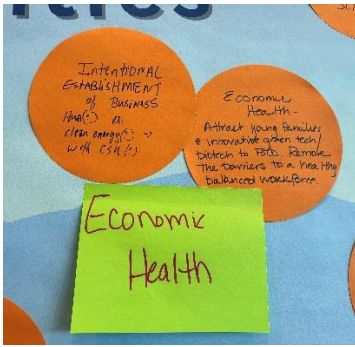 ities
INTENTIONAL
ESTABLISHMENT
of BUSINESS
Hub(s) ex.
clean energy(s)
with CSU(s)
Economic
Health -
Attract young families
& innovative green tech/
biotech to FoCo. Remove
the barriers to a healthy
balanced workforce.
Economic
Health